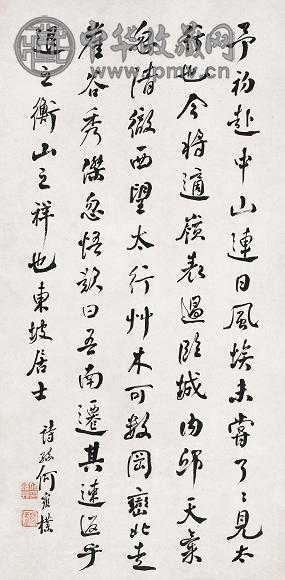 中华收藏网
予初赴中山連日風埃未嘗了〻見太
行也今將適嶺表過臨城內邱天氣
忽清徹西望太行艸木可數岡巒北走
崖谷秀傑忽悟歎曰吾南遷其速返乎
退之衡山之祥也東坡居士
詩孫何維樸